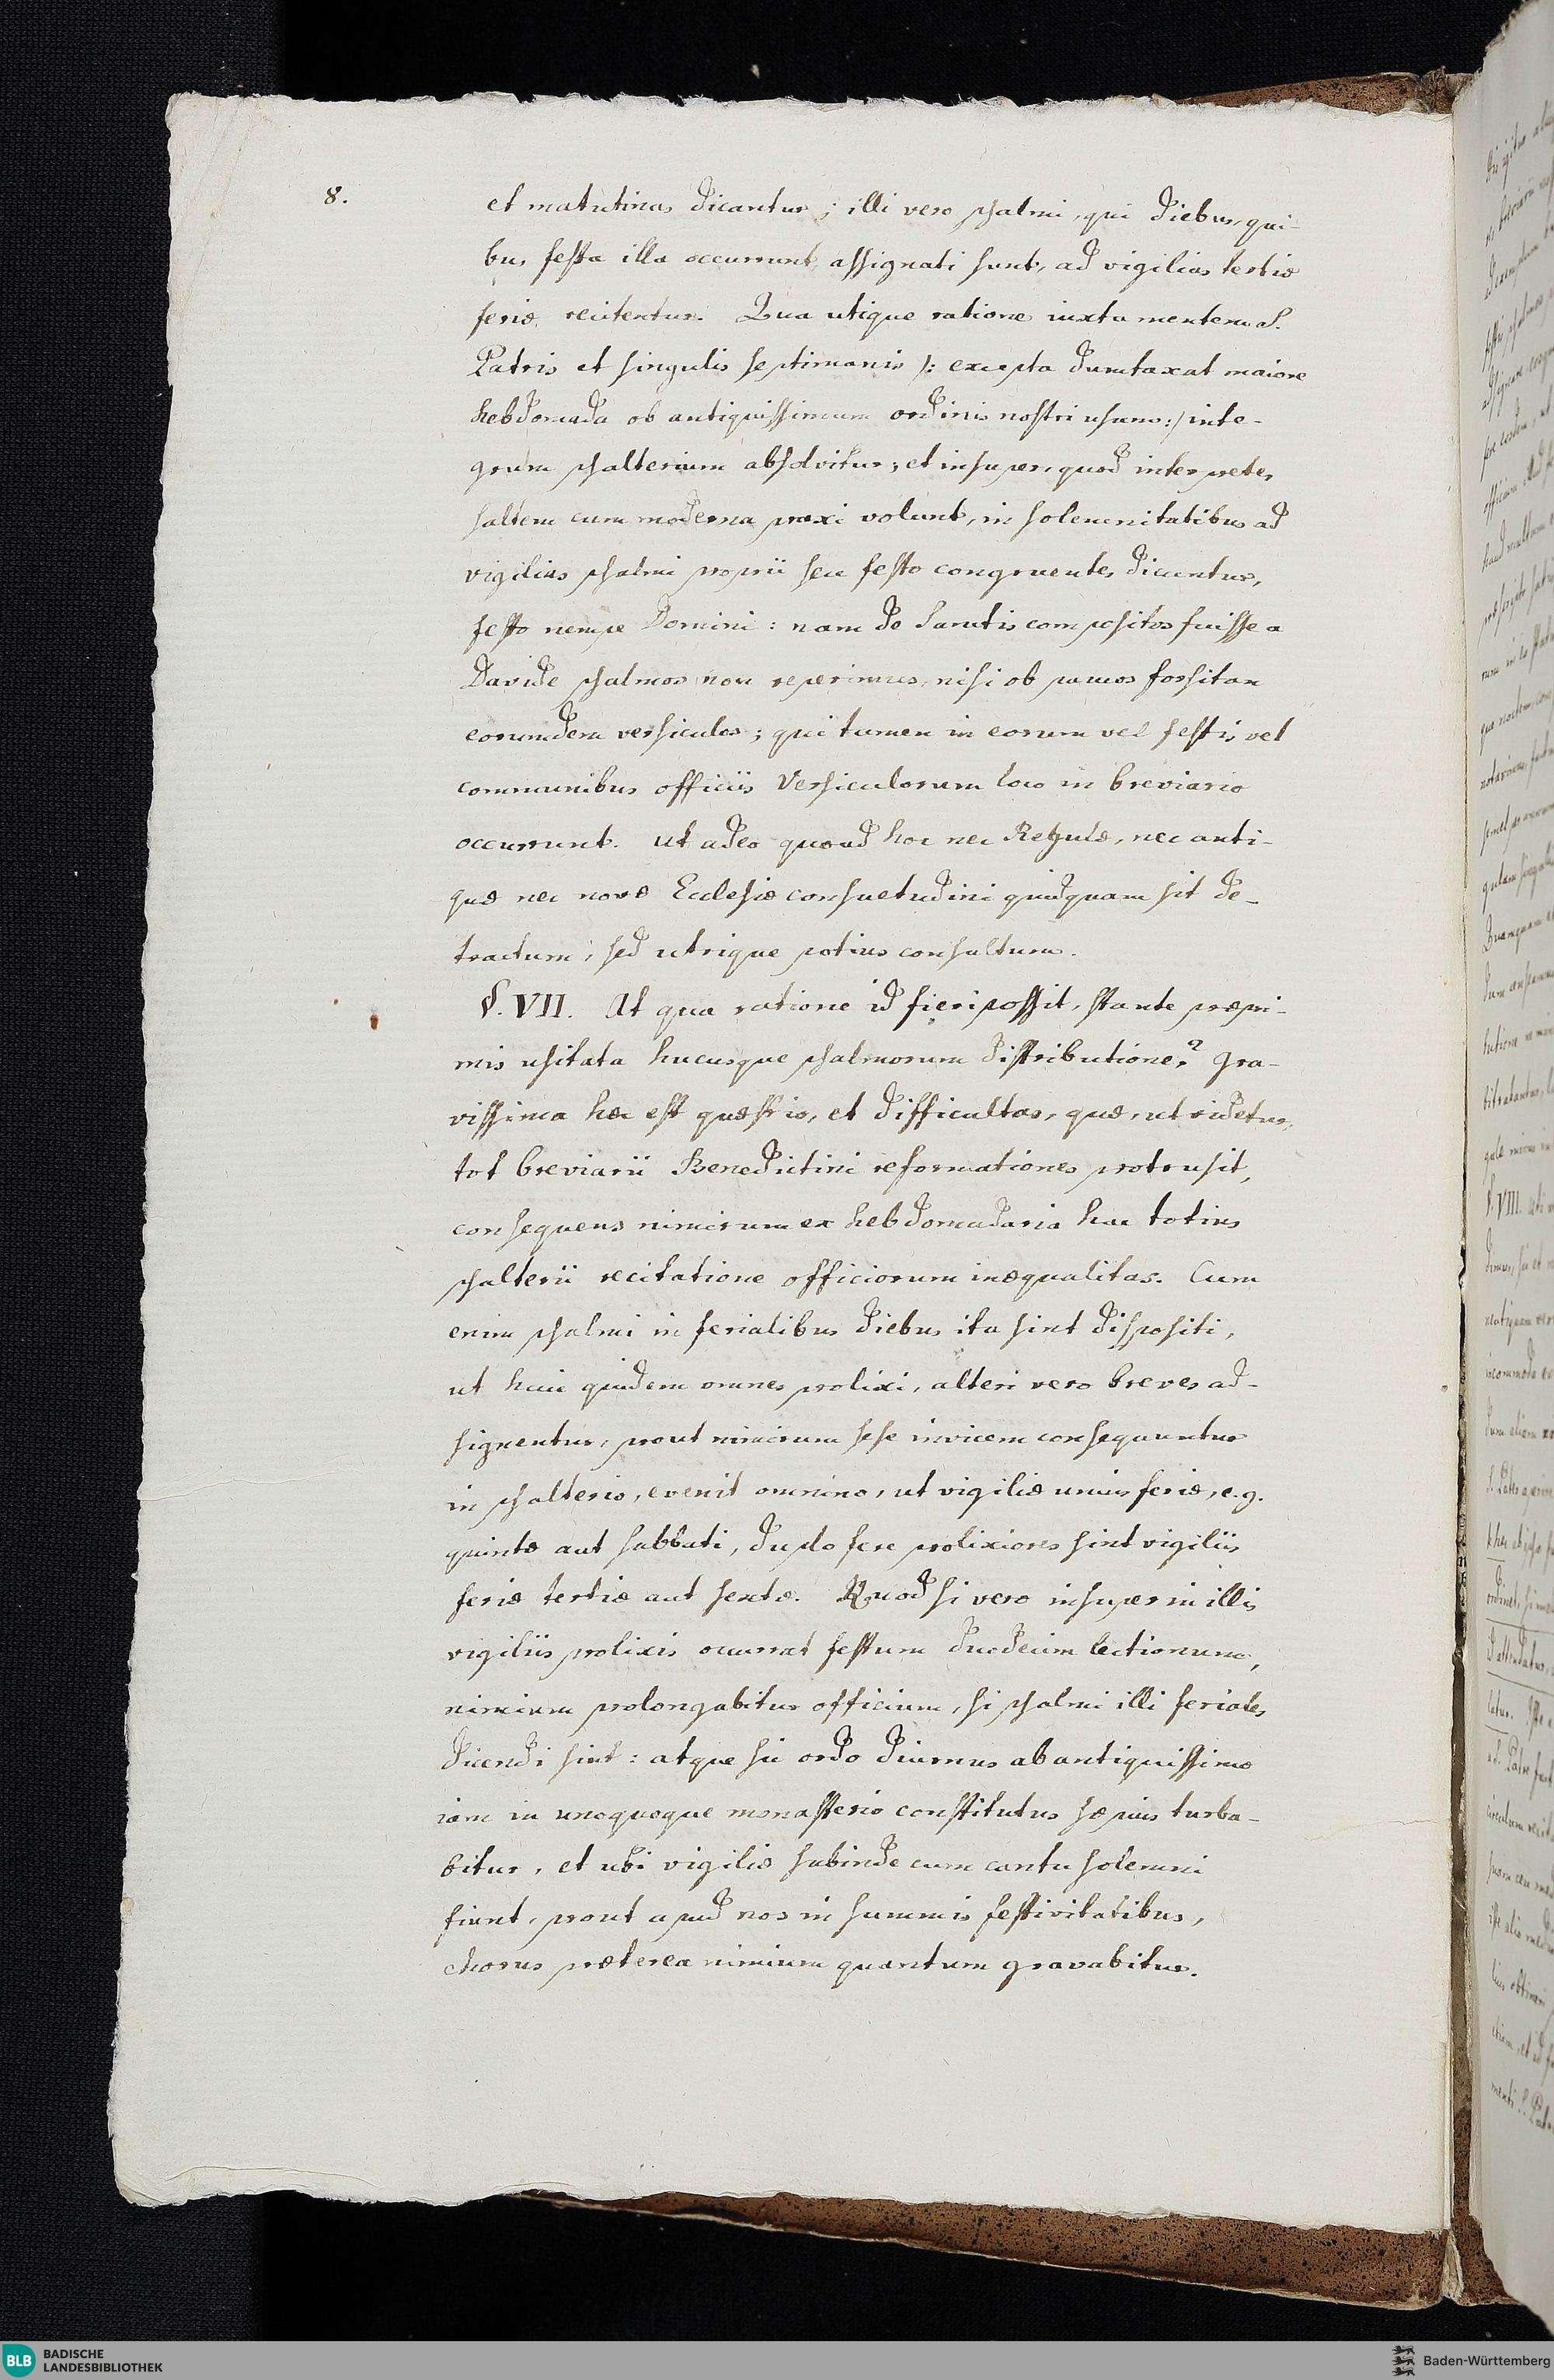 8.
et matutinas dicantur; illi vero psalmi, qui diebus, qui-
bus festa illa occurrunt, assignati sunt, ad vigilias tertiæ
feriæ recitentur. Qua utique ratione iuxta mentem S.
Patris et singulis septimanis /: excepta dumtaxat maiore
hebdomada ob antiquissimum ordinis nostri usum :/ inte-
grum psalterium absolvitur; et insuper, quod interpretes
saltem cum moderna praxi volunt, in solemnitatibus ad
vigilias psalmi proprii seu festo congruentes dicuntur,
festo nempe Domini: nam de Sanctis compositos fuisse a
Davide psalmos non reperimus, nisi ob paucos forsitan
eorumdem versiculos; qui tamen in eorum vel festis vel
communibus officiis Versiculorum loco in breviario
occurrunt. ut adeo quoad hoc nec Regulæ, nec anti-
quæ nec novæ Ecclesiæ consuetudini quidquam sit de-
tractum; sed utrique potius consultum.
§. VII. At qua ratione id fieri possit, stante præpri-
mis usitata hucusque psalmorum distributione? gra-
vissima hæc est quæstio, et difficultas, quæ, ut videtur,
tot breviarii Benedictini reformationes protrusit,
consequens nimirum ex hebdomadaria hac totius
psalterii recitatione officiorum inæqualitas. Cum
enim psalmi in ferialibus diebus ita sint dispositi,
ut huic quidem omnes prolixi, alteri vero breves ad-
signentur, prout nimirum sese invicem consequuntur
in psalterio, evenit omnino, ut vigiliæ unius feriæ, e.g.
quintæ aut sabbati, duplo fere prolixiores sint vigiliis
feriæ tertiæ aut sextæ. Quod si vero insuper in illis
vigiliis prolixis occurrat festum duodecim lectionum,
nimium prolongabitur officium, si psalmi illi feriales
dicendi sint: atque sic ordo diurnus ab antiquissimo
iam in unoquoque monasterio constitutus sæpius turba-
bitur, et ubi vigiliæ subinde cum cantu solemni
fiunt, prout apud nos in summis festivitatibus,
chorus præterea nimium quantum gravabitur.
BLB BADISCHE
LANDESBIBLIOTHEK
Baden-Württemberg